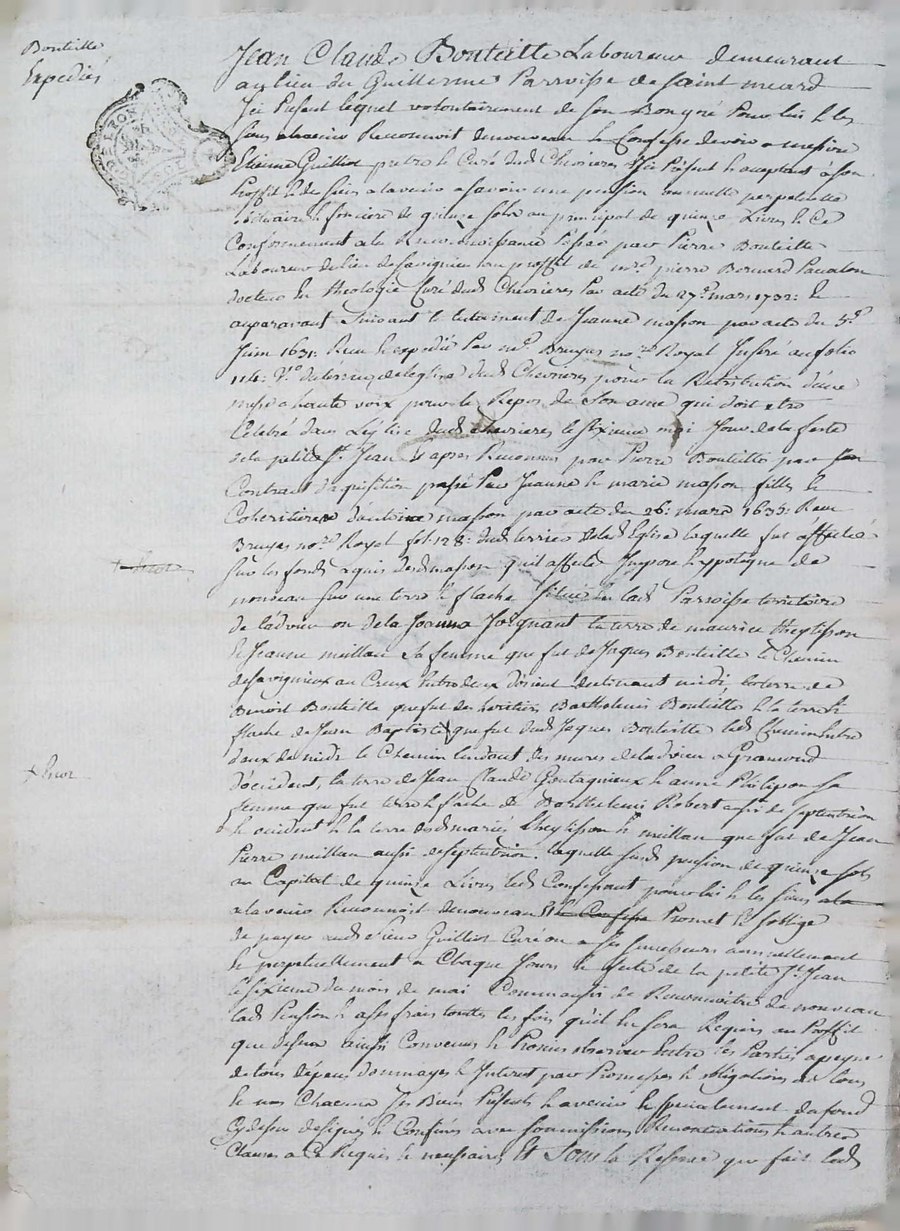 Bouteille
Expediés
Jean Claude Bouteille Laboureur demeurant
au lieu du Guillerme Parroisse de saint meard
Ici Présent lequel volontairement de son Bongré Pour lui & les
siens a lavenir Reconnoit denouveau & Confesse devoir a messire
Etienne Guilliot pretre & Curé dud Chevrieres Ici Présent & acceptant a son
Proffit & de siens a lavenir a savoir une pension annuelle perpetuelle
& fonciere de quinze sols au principal de quinze Livres & Ce
Conformement a la Reconnoissance Passée par Pierre Bouteille
Laboureur du lieu de savignieu au proffit de mre. pierre Bernard
docteur En theologie Curé dud Chevrieres Par acte du 27e. mars 1732: &
auparavant suivant le testament de Jeanne masson par acte du 5e.
Juin 1631: Reçu & expedié Par me. Bruyas nore. Royal Inseré au folio
114: Vo. du terrier de leglise dud Chevrieres pour la Retribution d'une
messe a haute voix pour le Repos de son ame qui doit etre
Celebré dans L'église dud chevrieres le sixieme mai Jour de la feste
de la petite St. Jean & apres Reconnu par Pierre Bouteille par son
Contract d'aquisition passé Par Jeanne & marie masson filles &
Coheritieres d'antoine masson par acte du 26: mars 1635: Reçu
Bruyas nore. Royal fol. 128: dud terrier de lad Eglise laquelle fut affectée
sur les fonds aquis desd masson qu'il affecte Impose & hypoteque de
nouveau sur une terre & flache située En lad Parroisse territoire
de Ladvieu ou de la Joanna Joignant la terre de maurice theylisson
& Jeanne meillau sa femme que fut de Jaques Bouteille le Chemin
de savignieux au Creux Entre deux d'orient declinant midi, la terre de
Benoit Bouteille que fut des heritiers Barthelemi Bouteille & la terre &
flache de Jean Baptiste X que fut dud Jaques Bouteille led Chemin Entre
deux de midi le Chemin tendant des mures de Ladvieu a Grammond
d'occident, la terre de Jean Claude Goutagnieux & anne Philipon sa
femme que fut terre & flache de Barthelemi Robert aussi de septentrion
& occident & la terre desd mariés theylisson & meillau que fut de Jean
Pierre meillau aussi de septentrion. laquelle susd pension de quinze sols
au Capital de quinze Livres led Confessant pour lui & les siens a la
a lavenir Reconnoit denouveau & Confesse Promet & s'oblige
de payer aud sieur Guilliot Curé ou a ses successeurs annuellement
& perpetuellement a Chaque Jours & feste de la petite St. Jean
le sixieme du mois de mai Comme aussi de Reconnoitre de nouveau
lad Pension & a ses frais toutes les fois qu'il En sera Requis au Proffit
que dessus ainsi Convenu & Promis observer Entre les Parties a peyne
de tous dépens dommages & Interest par Promesses & obligations de tous
& uns Chacuns Ses Biens Présents & avenir & specialement du fond
Cy dessus designé & Confiné avec soumissions Renonciations & autres
Clauses a Ce Requis & necessaires Et Sous la Reserve que fait led